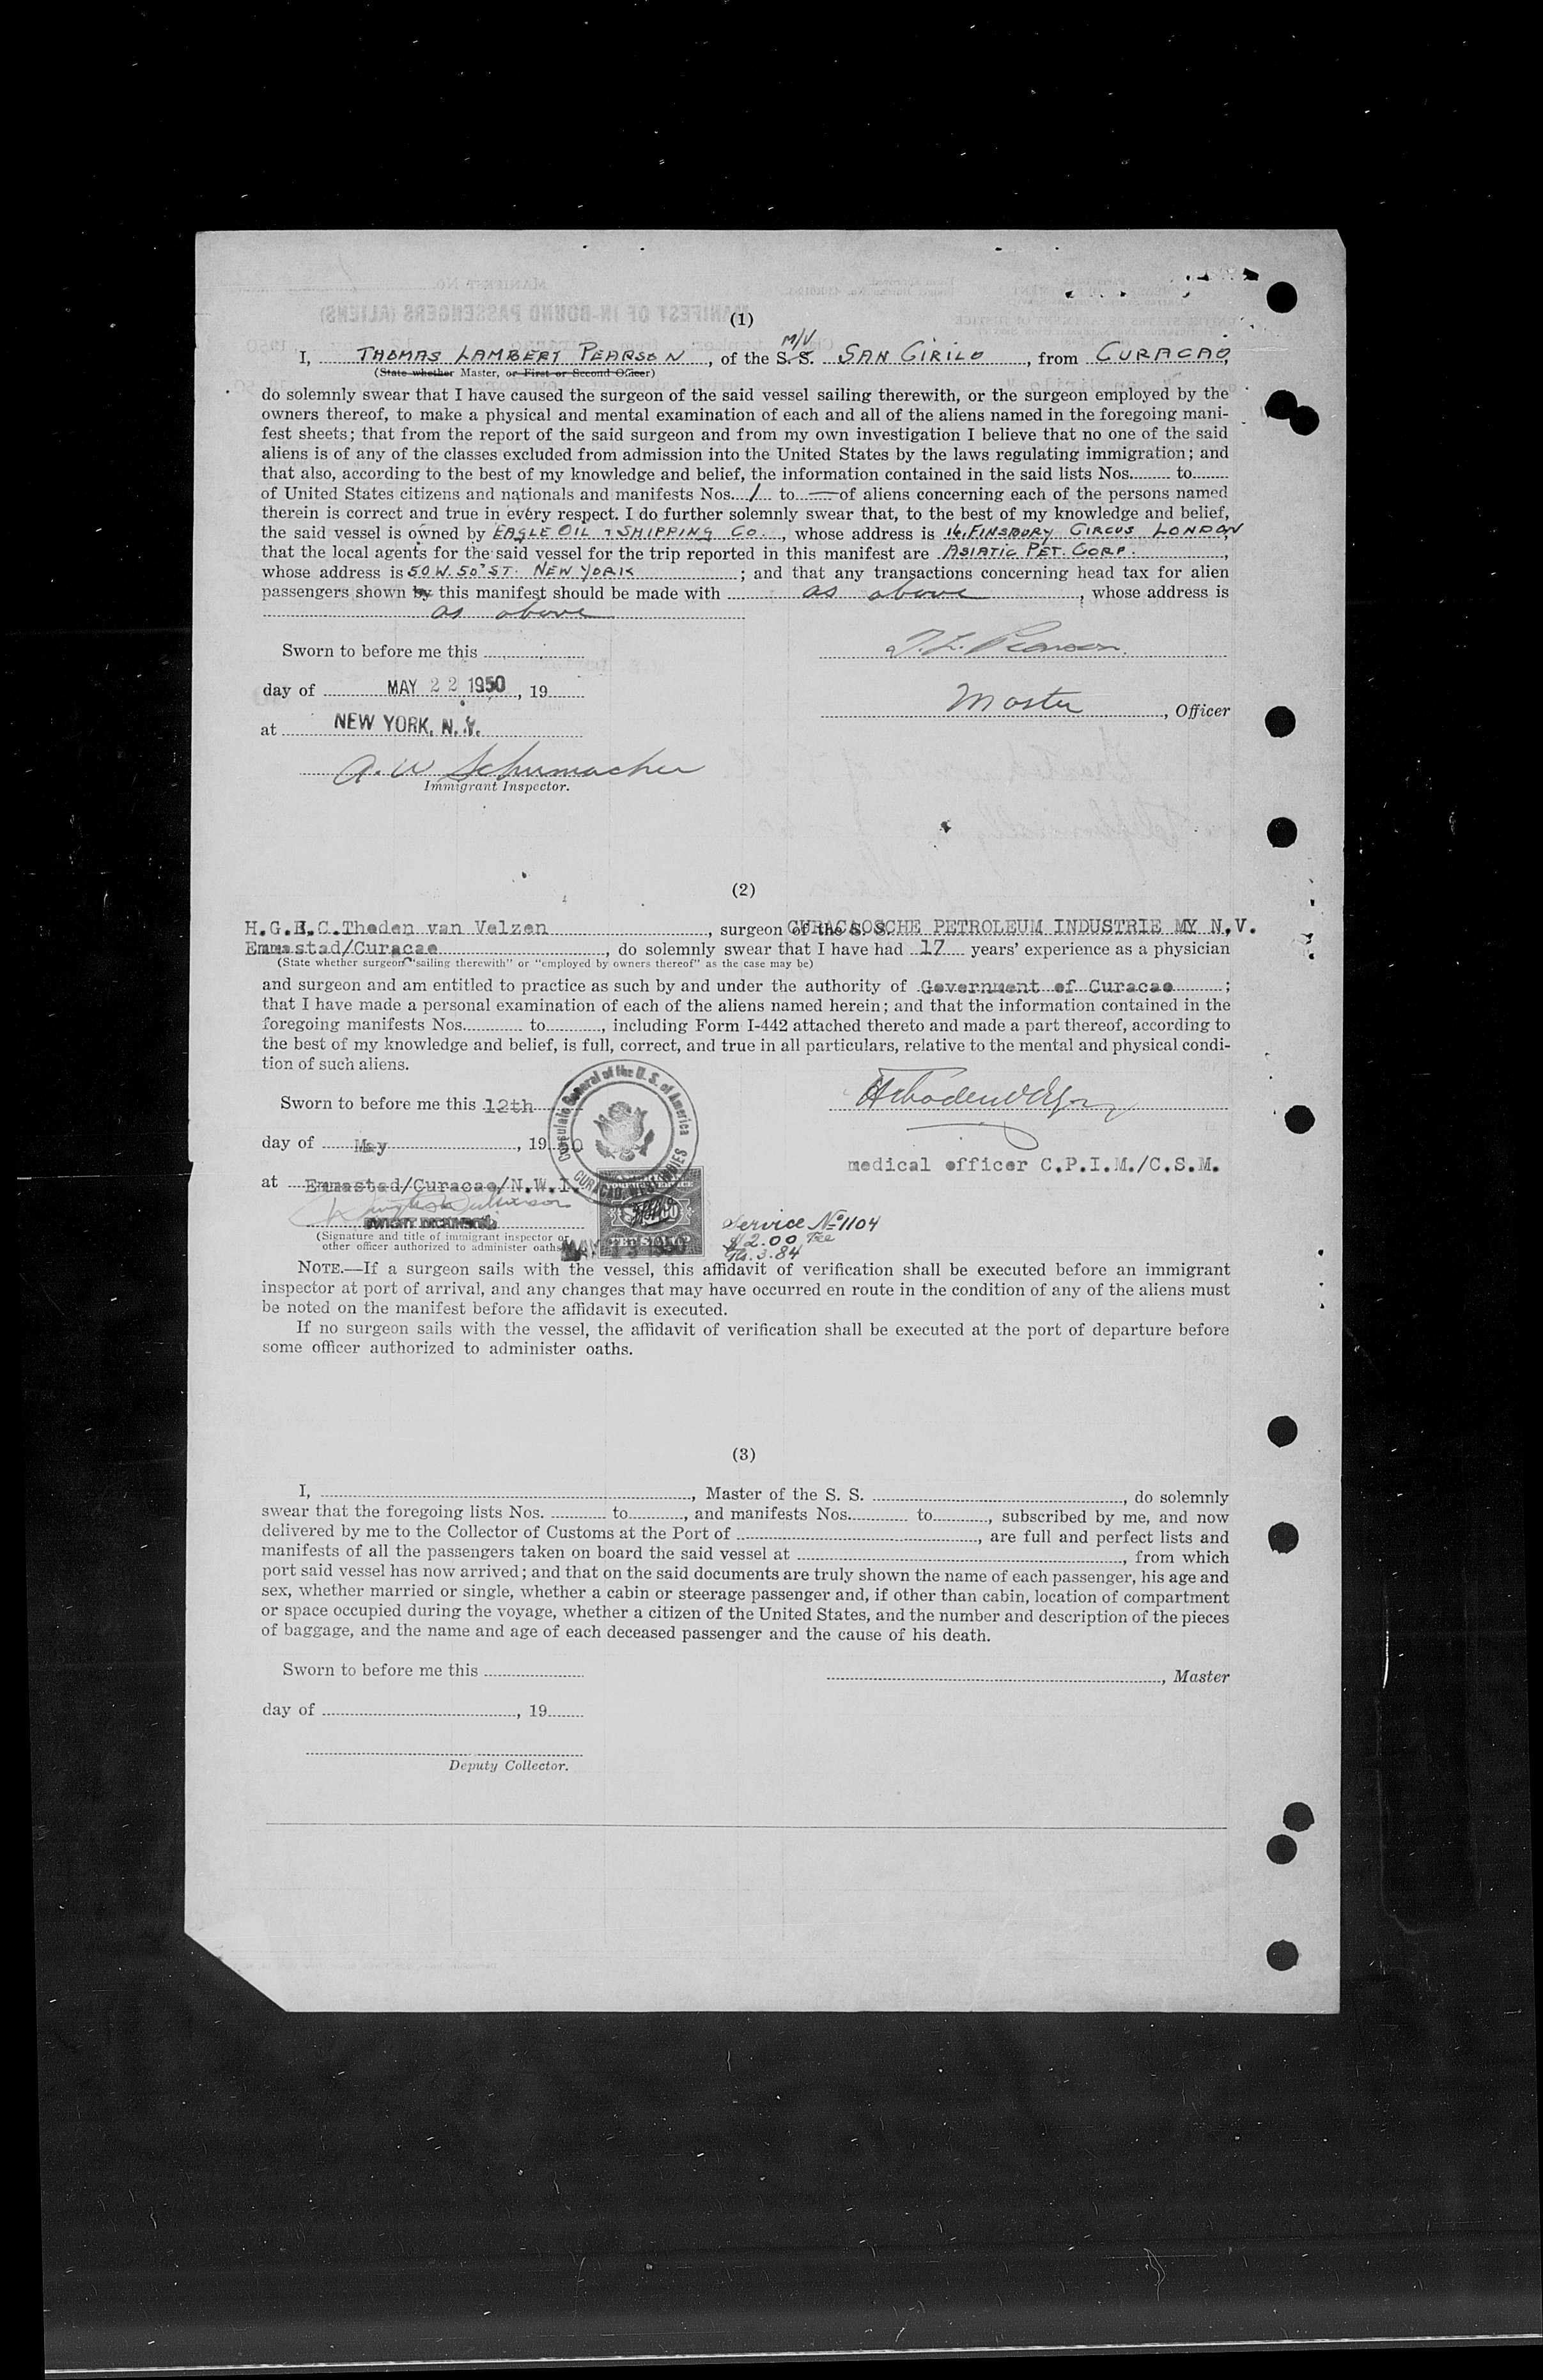 (1)
M/V
I, THOMAS LAMBERT PEARSON, of the S. S. SAN CIRILO, from CURACAO,
(State whether Master, or First or Second Officer)
do solemnly swear that I have caused the surgeon of the said vessel sailing therewith, or the surgeon employed by the
owners thereof, to make a physical and mental examination of each and all of the aliens named in the foregoing mani-
fest sheets; that from the report of the said surgeon and from my own investigation I believe that no one of the said
aliens is of any of the classes excluded from admission into the United States by the laws regulating immigration; and
that also, according to the best of my knowledge and belief, the information contained in the said lists Nos. to
of United States citizens and nationals and manifests Nos. 1 to — of aliens concerning each of the persons named
therein is correct and true in every respect. I do further solemnly swear that, to the best of my knowledge and belief,
the said vessel is owned by EAGLE OIL & SHIPPING CO., whose address is 16, FINSBURY CIRCUS LONDON,
that the local agents for the said vessel for the trip reported in this manifest are ASIATIC PET. CORP.,
whose address is 50 W. 50' ST. NEW YORK; and that any transactions concerning head tax for alien
passengers shown by this manifest should be made with as above, whose address is
as above
Sworn to before me this
T. L. Pearson.
day of MAY 22 1950, 19
Master, Officer
at NEW YORK, N. Y.
A. W Schumacher
Immigrant Inspector.
(2)
H.G.H.C.Thoden van Velzen, surgeon of the S. S. CURACAOSCHE PETROLEUM INDUSTRIE MY N.V.
Emmastad/Curacao, do solemnly swear that I have had 17 years' experience as a physician
(State whether surgeon "sailing therewith" or "employed by owners thereof" as the case may be)
and surgeon and am entitled to practice as such by and under the authority of Government of Curacao;
that I have made a personal examination of each of the aliens named herein; and that the information contained in the
foregoing manifests Nos. to, including Form I-442 attached thereto and made a part thereof, according to
the best of my knowledge and belief, is full, correct, and true in all particulars, relative to the mental and physical condi-
tion of such aliens.
Consulate General of the U. S. of America
CURACAO, WEST INDIES
Sworn to before me this 12th
day of May, 1950
medical officer C.P.I.M./C.S.M.
at Emmastad/Curacao/N.W.I.
Dwight Dickinson
DWIGHT DICKINSON
Service No 1104
$2.00 Fee
Fls. 3.84
(Signature and title of immigrant inspector or
other officer authorized to administer oaths)
NOTE.—If a surgeon sails with the vessel, this affidavit of verification shall be executed before an immigrant
inspector at port of arrival, and any changes that may have occurred en route in the condition of any of the aliens must
be noted on the manifest before the affidavit is executed.
If no surgeon sails with the vessel, the affidavit of verification shall be executed at the port of departure before
some officer authorized to administer oaths.
(3)
I, , Master of the S. S. , do solemnly
swear that the foregoing lists Nos. to, and manifests Nos. to, subscribed by me, and now
delivered by me to the Collector of Customs at the Port of , are full and perfect lists and
manifests of all the passengers taken on board the said vessel at , from which
port said vessel has now arrived; and that on the said documents are truly shown the name of each passenger, his age and
sex, whether married or single, whether a cabin or steerage passenger and, if other than cabin, location of compartment
or space occupied during the voyage, whether a citizen of the United States, and the number and description of the pieces
of baggage, and the name and age of each deceased passenger and the cause of his death.
Sworn to before me this
, Master
day of , 19
Deputy Collector.